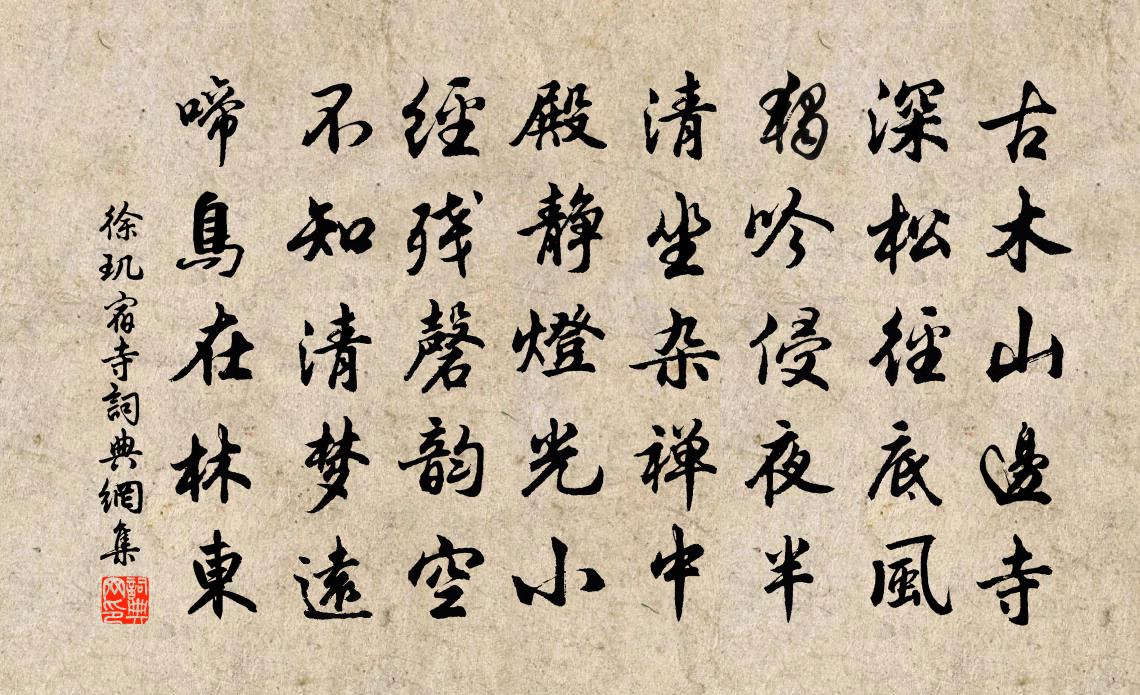 古木山邊寺
深松徑底風
獨吟侵夜半
清坐杂禅中
殿静燈光小
經残磬韵空
不知清梦遠
啼鳥在林東
徐玑宿寺詞典網集
詞典网印